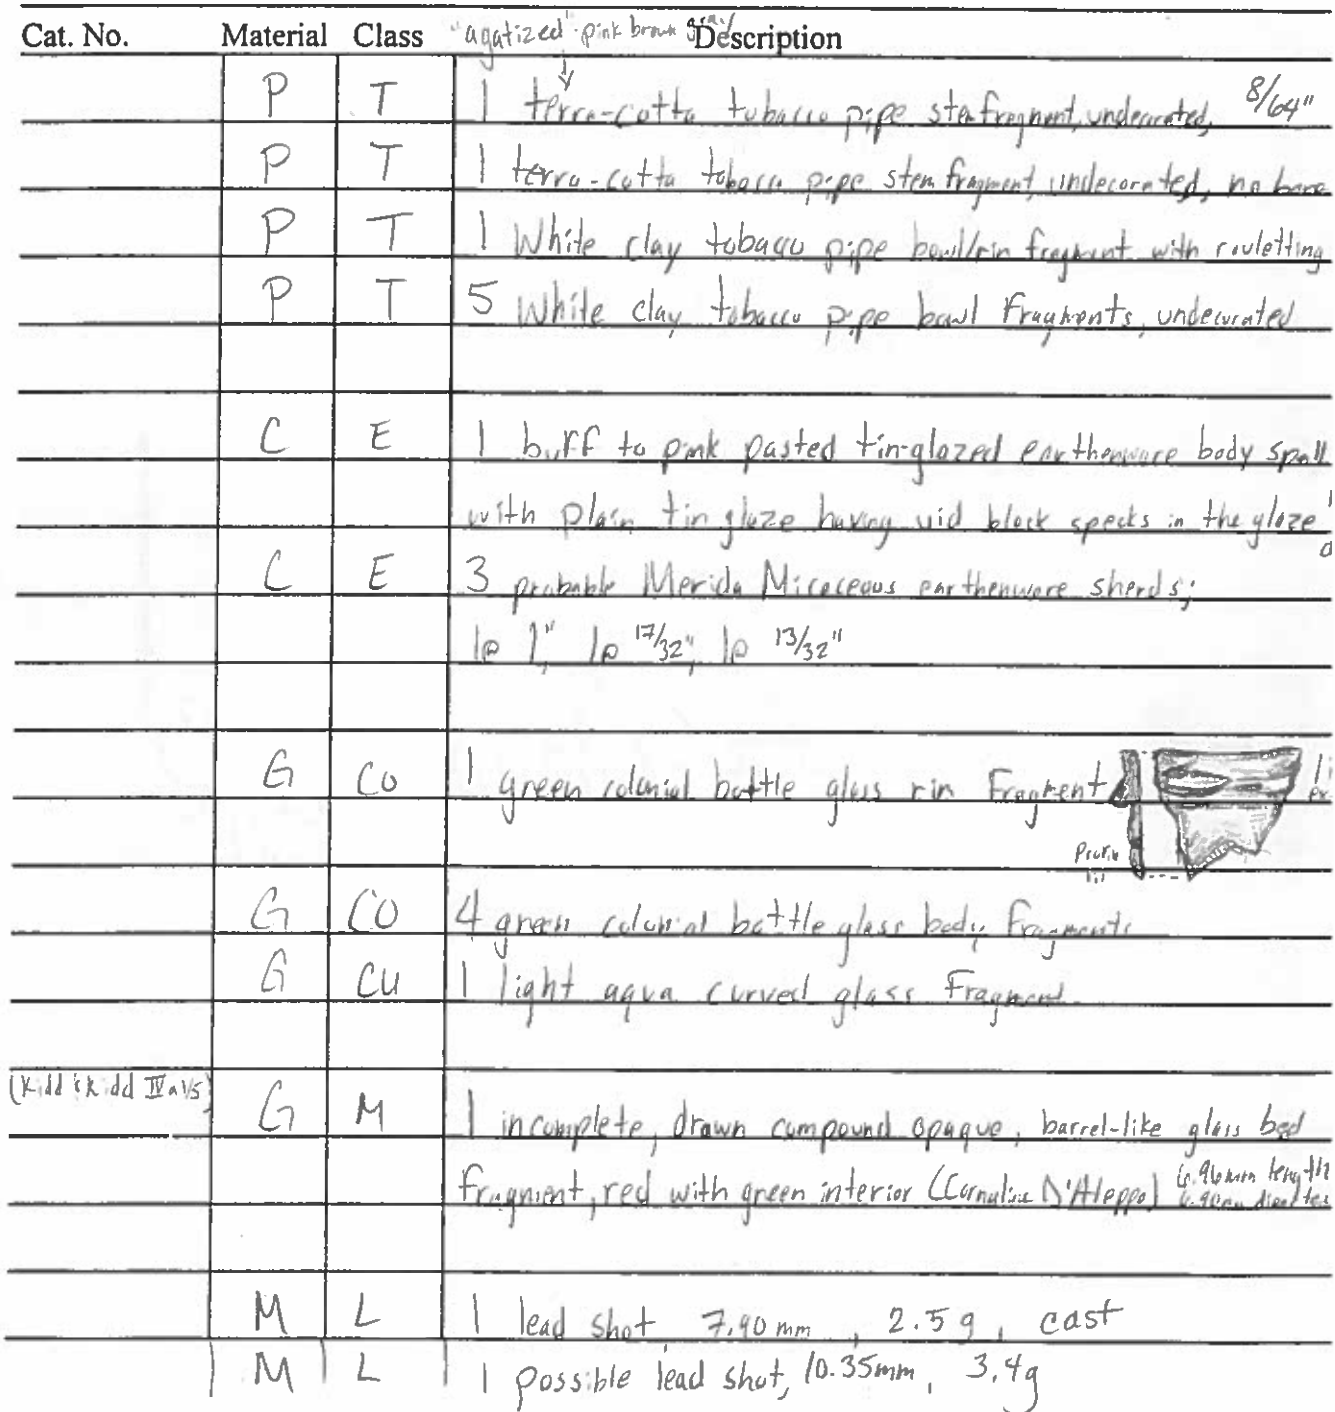 "agatized" pink brown gray
Cat. No. Material Class Description
P T 1 terra-cotta tobacco pipe stem fragment, undecorated, 8/64"
P T 1 terra-cotta tobacco pipe stem fragment, undecorated, no bore
P T 1 White clay tobacco pipe bowl/rim fragment with rouletting
P T 5 White clay tobacco pipe bowl fragments, undecorated
C E 1 buff to pink pasted tin-glazed earthenware body spall
with plain tin glaze having uid black specks in the glaze
C E 3 probable Merida Micaceous earthenware sherds;
1@ 1", 1@ 17/32", 1@ 13/32"
G CO 1 green colonial bottle glass rim fragment
Profile
G CO 4 green colonial bottle glass body fragments
G CU 1 light aqua curved glass fragment
(Kidd & Kidd IVa1/5) G M 1 incomplete, drawn compound opaque, barrel-like glass bed
fragment, red with green interior (Cornaline D'Aleppo) 6.96mm length
6.90mm diameter
M L 1 lead shot 7.90mm, 2.5g, cast
M L 1 possible lead shot, 10.35mm, 3.4g